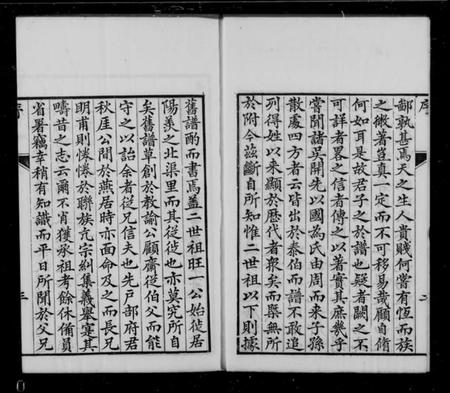 序
鄙孰甚焉天之生人貴賤何嘗有恆而族
之微著豈真一定而不可移易哉顧自脩
何如耳是故君子之於譜也疑者闕之不
可詳者畧之信者傳之以著實其庶幾乎
嘗聞諸吳開先以國為氏由周而来子孫
散處四方者云皆出於泰伯而譜不敢追
列得姓以来顯於歷代者衆矣而槩無所
於附今茲斷自所知惟二世祖以下則據
二
舊譜酌而書焉蓋二世祖旺一公始徙居
陽羨之北渠里而其從徙也亦莫究所自
矣舊譜草創於教諭公顧齋從伯父而能
守之以詒余者從兄信夫也先戶部府君
秋厓公間於燕居時亦惓及之而長兄
明甫則惓惓於聯族亢宗糾集義舉寔其
疇昔之志云爾不肖獲承祖考餘休備員
省署竊幸稍有知識而平日所聞於父兄
序
三
0